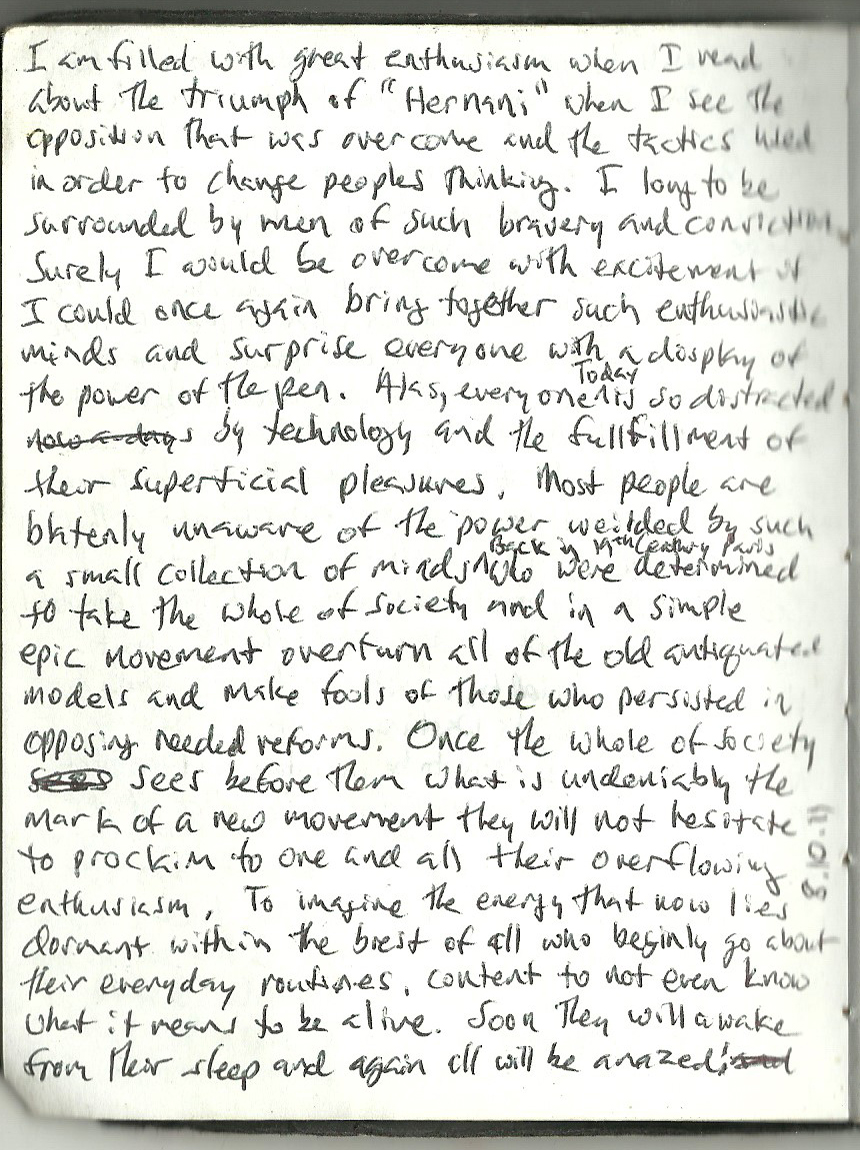 I am filled with great enthusiasm when I read
about the triumph of "Hernani" when I see the
opposition that was overcome and the tactics used
in order to change peoples thinking. I long to be
surrounded by men of such bravery and conviction
Surely I would be overcome with excitement if
I could once again bring together such enthusiastic
minds and surprise everyone with a display of
Today
the power of the pen. Alas, everyone is so distracted
now a days by technology and the fullfillment of
their superficial pleasures. Most people are
blatenly unaware of the power weilded by such
Back in 19th Century Paris
a small collection of minds who were determined
to take the whole of society and in a simple
epic movement overturn all of the old antiquated
models and make fools of those who persisted in
opposing needed reforms. Once the whole of society
sees before them what is undeniably the
mark of a new movement they will not hesitate
to proclaim to one and all their overflowing
enthusiasm. To imagine the energy that now lies
dormant within the brest of all who go about
their everyday routines, content to not even know
what it means to be alive. Soon they will awake
from their sleep and again all will be amazed!
8.10.11